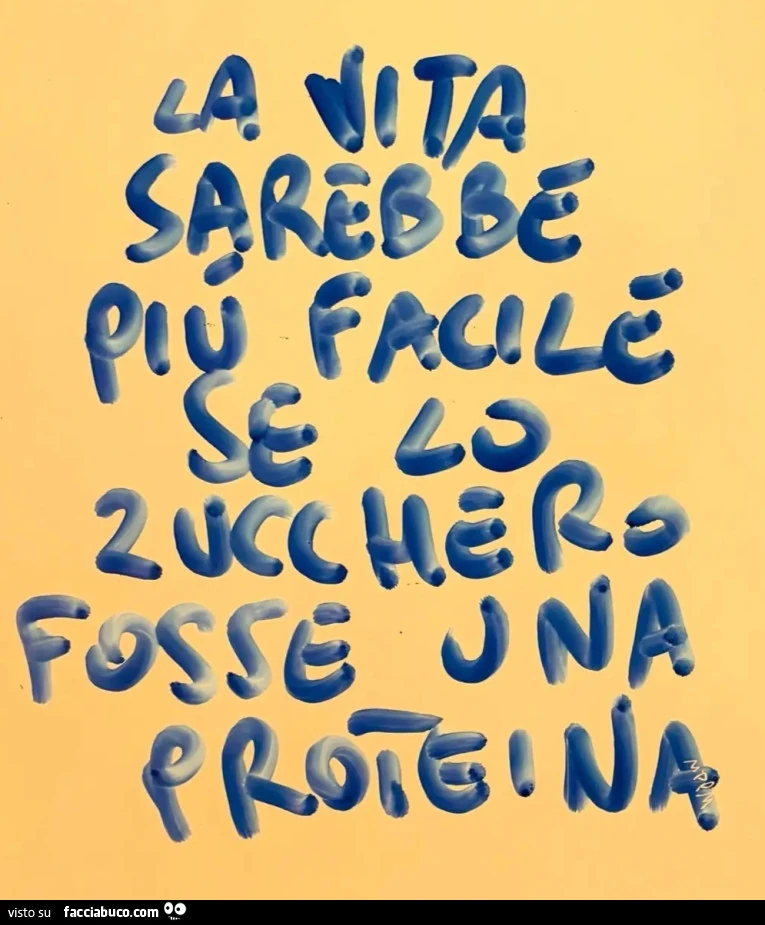 LA VITA
SAREBBE
PIÚ FACILE
SE LO
ZUCCHERO
FOSSE UNA
PROTEINA
visto su facciabuco.com